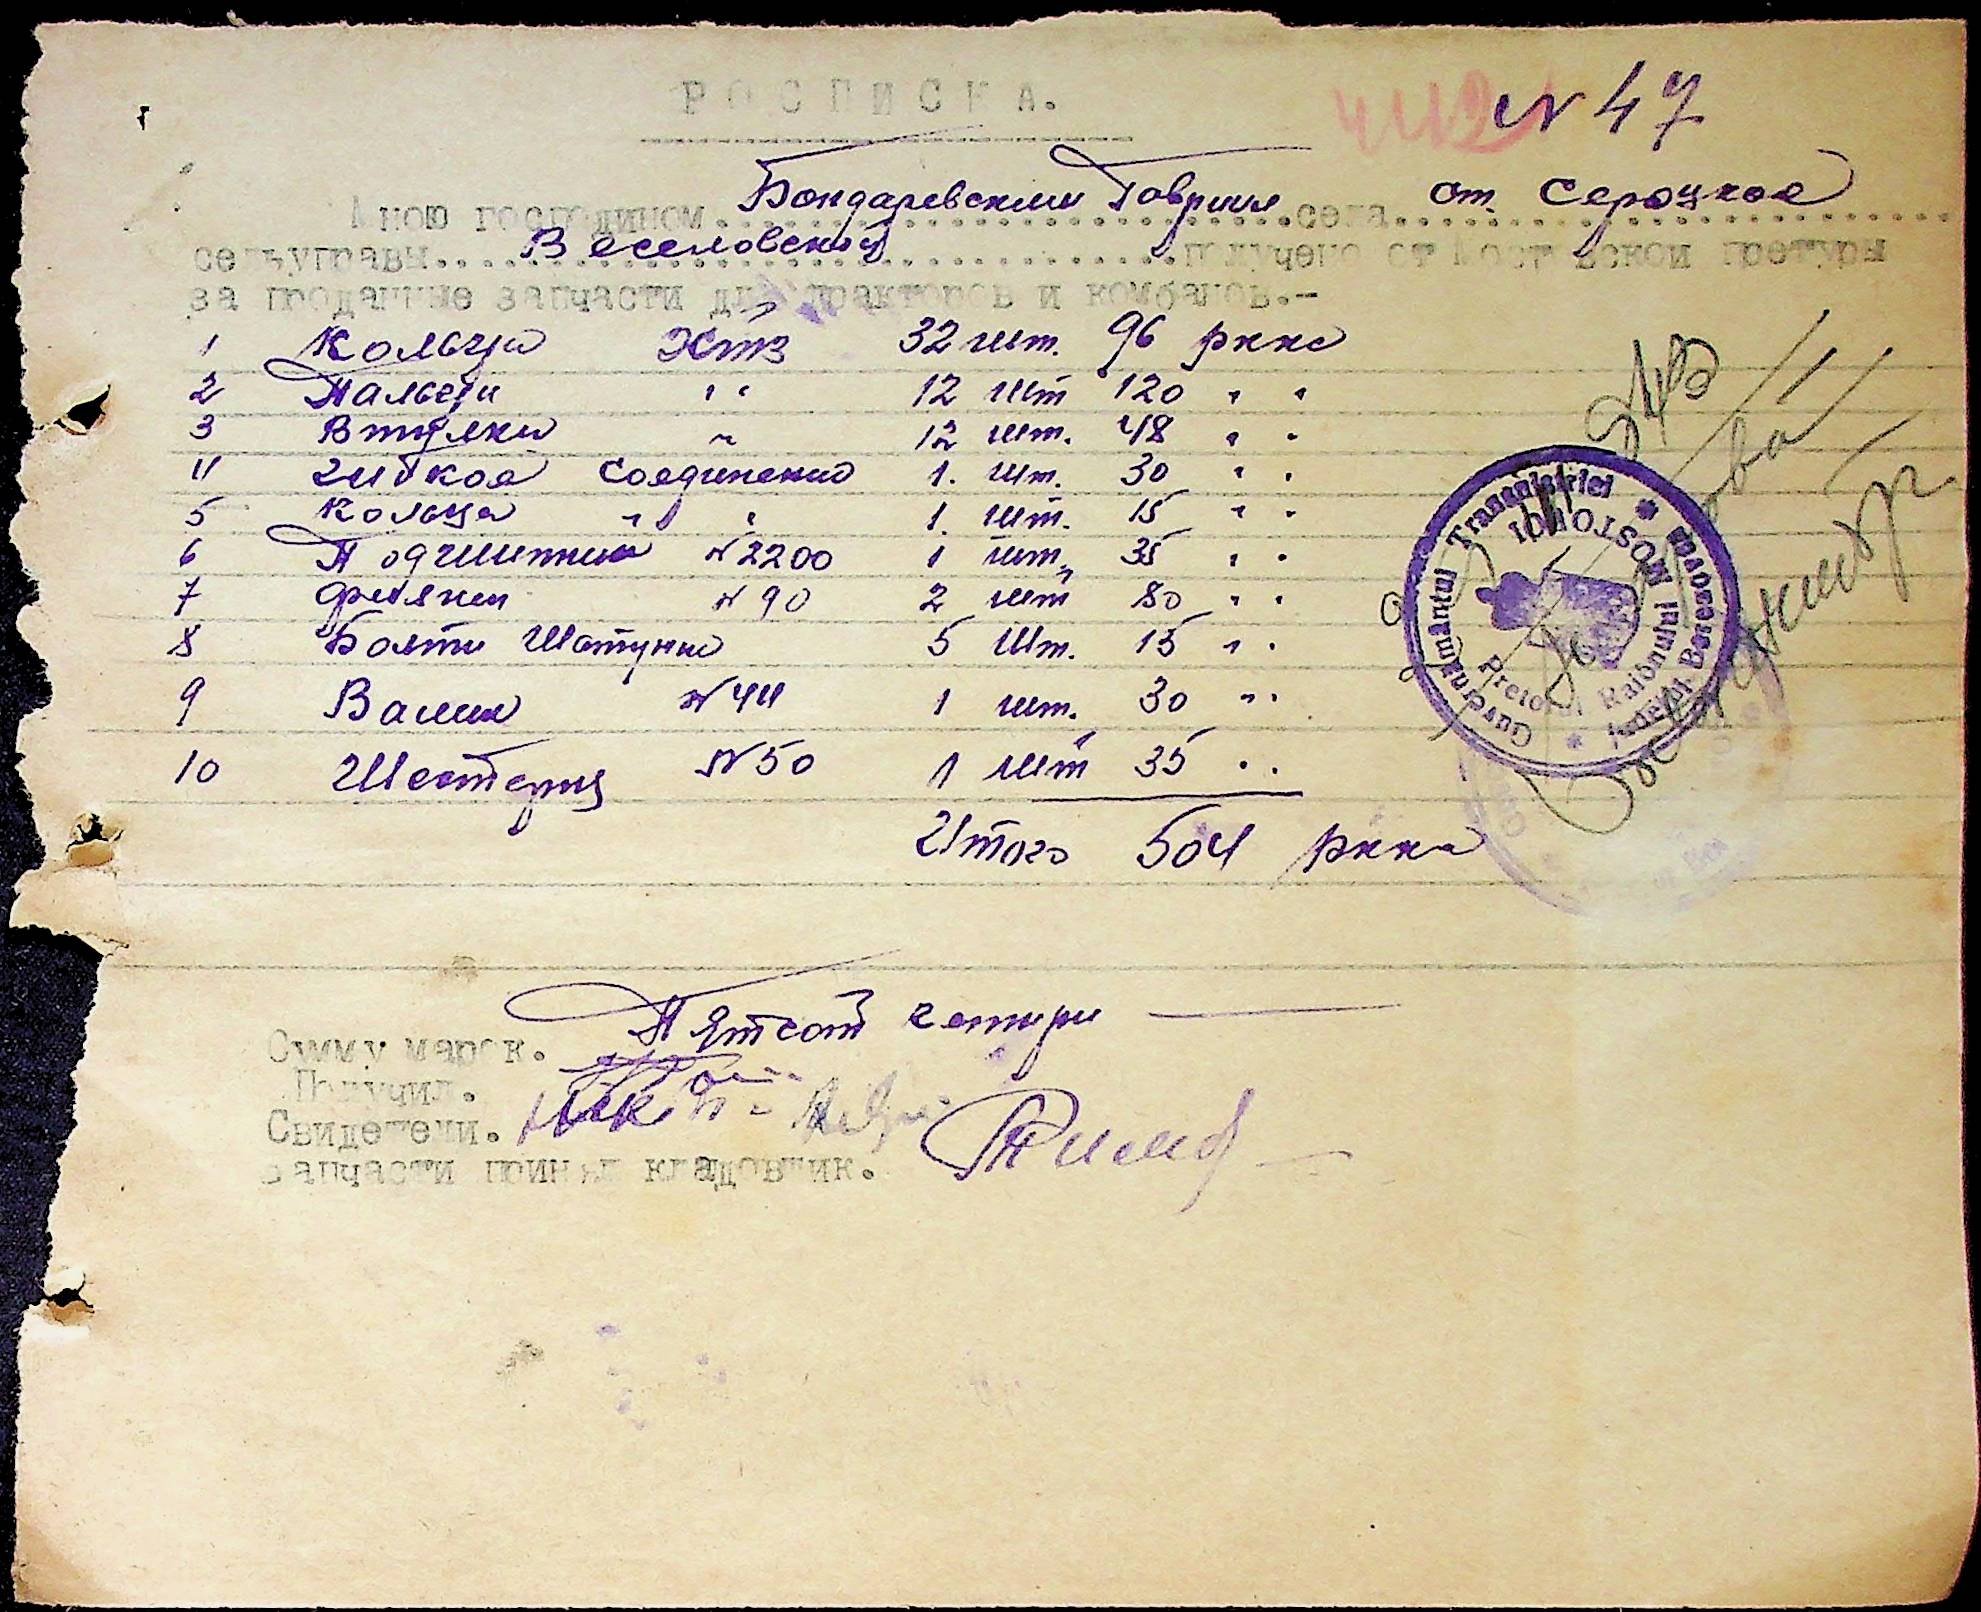 РОСПИСКА.
N 47
Мною господином Бондаревским Гавриил села ст. Сероцкое
сельуправы Веселовской получено от Мостовской претуры
за проданные запчасти для тракторов и комбайнов.-
1 Кольци Хтз 32 шт. 96 ркке
2 Пальци " 12 шт 120 " "
3 Втулки " 12 шт. 48 " "
4 гибкое соединение 1. шт. 30 " "
5 Кольца " " 1. шт. 15 " "
6 Подшипник N 2200 1 шт. 35 " "
7 N 90 2 шт 80 " "
8 Болти Шатунни 5 шт. 15 " "
9 Валик N 44 1 шт. 30 " "
10 Шестерня N 50 1 шт 35 " "
Итого 504 ркке
Guvernământul Transnistriei
Pretorul Raionului MOSTOVOI
Județul Berezovca
Пятсот четири
Сумму марок.
Получил.
Свидетели.
Запчасти принял кладовщик.